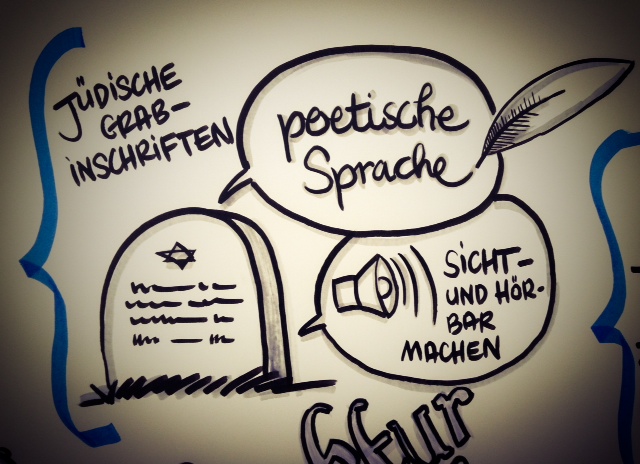 JÜDISCHE
GRAB-
INSCHRIFTEN
poetische
Sprache
SICHT-
UND HÖR-
BAR
MACHEN